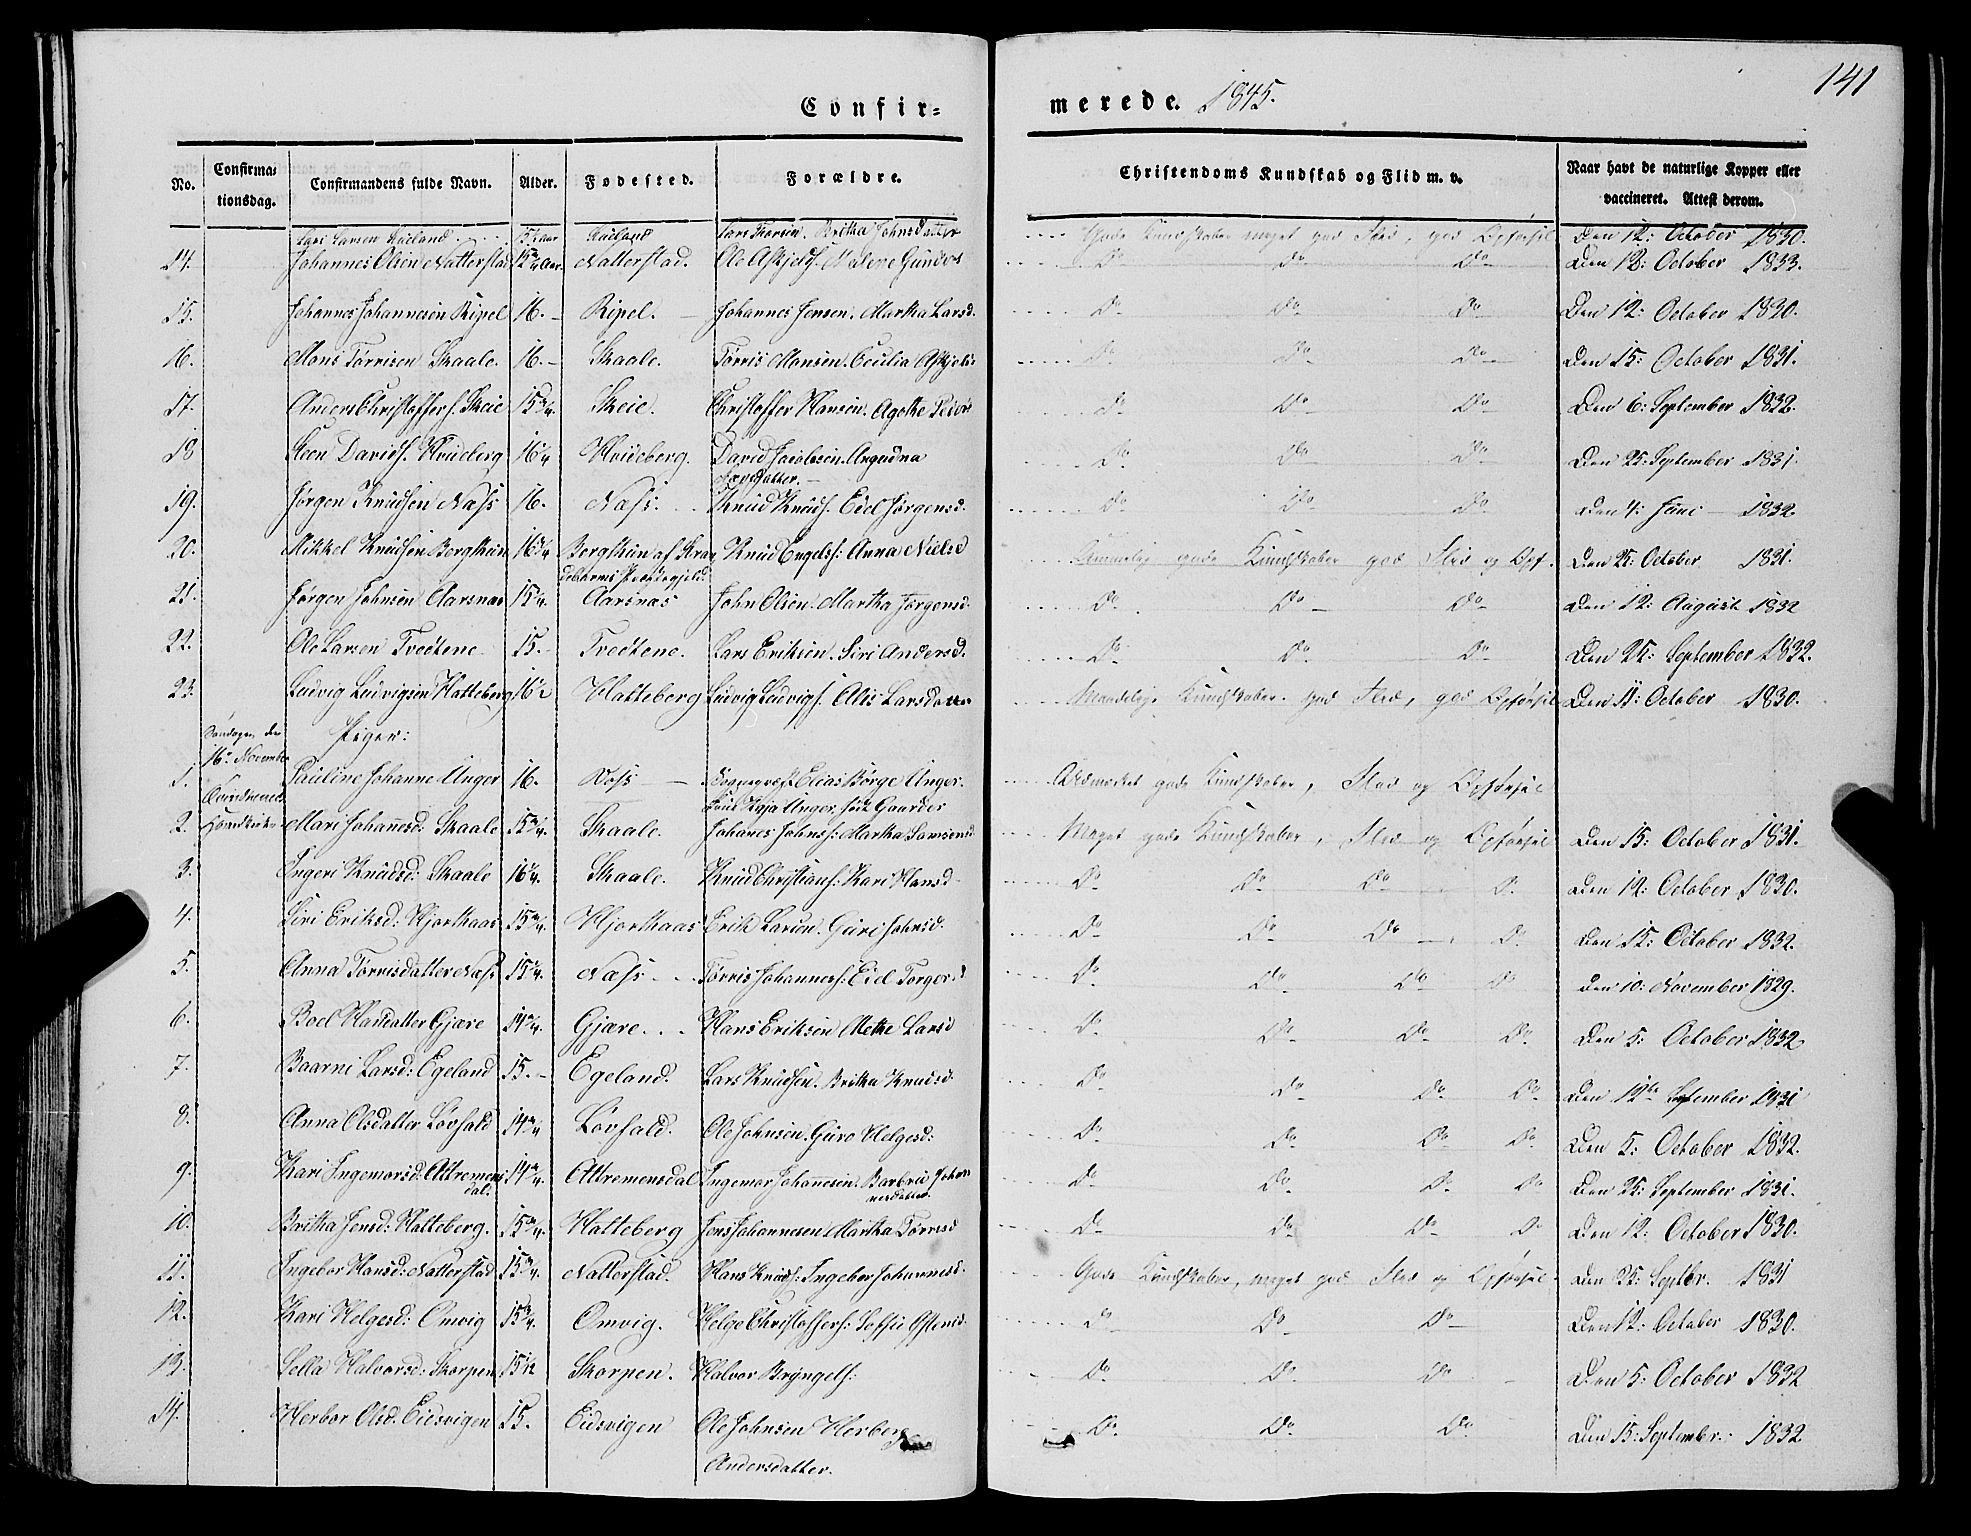 141
Confir= merede. 1845.
No. Confirma= tionsdag. Confirmandens fulde Navn. Alder. Fødested. Forældre. Christendoms Kundskab og Flid m. v. Naar havt de naturlige Kopper eller vaccineret. Attest derom.
Lars Larsen Lars Britha Johnsdatter Gode Kundskaber meget god Flid, god Opførsel Den 12: October 1830.
14. Johannes Olsen Natterstad 15 3/4 Aar. Natterstad. Ole Askjelds. Malene Gunders Do Do Do Den 12: October 1833.
15. Johannes Johannesen Ripel 16. Ripel. Johannes Jensen. Martha Larsd. Do Do Do Den 12: October 1830.
16. Mons Tørrisen Skaale. 16. Skaale. Tørris Monsen. Cecilia Askjelds: Do Do Do Den 15: October 1831.
17. Anders Christoffers. Skeie 15 3/4. Skeie. Christoffer Hansen. Agathe Do Do Do Den 6: September 1832.
18 Steen Davids. Hvideberg 16 1/4 Hvideberg. David Jacobsen. Do Do Do Den 25: September 1831.
19. Jørgen Knudsen Næss 16. Næss. Knud Knuds. Edel Jørgensd. Do Do Do Den 4: Juni 1832.
20. Mikkel Knudsen Bergstuen Bergstuen af Knud Engels: Anna Nielsd Temmelig gode Kundskaber god Flid og Opf. Den 25: October 1831.
21. Jørgen Johnsen Aarsnæs 15 1/4. Aarsnæs John Olsen. Martha Jørgensd. Do Do Do Den 12: August 1832
22. Ole Larsen Tvedtene 15. Tvedtene. Lars Eriksen. Siri Andersd. Do Do Do Den 25: September 1832.
23. Ludvig Ludvigsen Hatteberg 16 1/2 Hatteberg Ludvig Ludvigs. Alis Larsdatter Maadelige Kundskaber. god Flid, god Opførsel Den 11: October 1830.
Søndagen den Piger:
16de November
1. Pauline Johanne Unger 16. Voss Elias Børge Unger. Udmærket gode Kundskaber, Flid og Opførsel
Unger født Gaarder
2. Mari Johannesd: Skaale 15 3/4. Skaale. Johanes Johns: Martha Samsonsd Meget gode Kundskaber, Flid og Opførsel Den 15: October 1831.
3. Ingeri Knudsd: Skaale 16 1/4. Skaale. Knud Christians: Kari Hansd Do Do Do Do Den 12: October 1830.
4. Siri Eriksd: Hjorthaas 15 3/4. Hjorthaas Erik Larsen. Guri Johnsd. Do Do Do Do Den 15: October 1832.
5. Anna Tørrisdatter Næss 15 1/4. Næss Tørris Johannes: Eid Torgersd Do Do Do Do Den 10: November 1829.
6. Boel Hansdatter Gjære 14 3/4. Gjære. Hans Eriksen Mette Larsd Do Do Do Do Den 5: October 1832
7. Baarni Larsd: Egeland 15. Egeland. Lars Knudsen. Britha Knudsd. Do Do Do Do Den 12te September 1831
8. Anna Olsdatter Løvfald 14 3/4 Løvfald. Ole Johnsen. Guro Helgesd: Do Do Do Do Den 5: October 1832.
9. Kari Ingemarsd: Attremens dal: 14 3/4. Attremensdal Ingemar Johannesen. Barbru Johan nesdatter Do Do Do Do Den 25: September 1831.
10. Britha Jensd: Hatteberg. 15 3/4. Hatteberg Jens Johannesen Martha Tørrisd Do Do Do Do Den 12: October 1830.
11. Ingebor Hansd: Natterstad 15 3/4. Natterstad. Hans Knuds: Ingebor Johannesd. Gode Kundskaber, meget god Flid og Opførsel. Den 25: Septbr. 1831
12. Kari Helgesd: Omvig 15 3/4. Omvig. Helge Christoffers: Do Do Do Den 12: October 1830.
13. Sella Halvorsd: Skorpen 15 1/2 Skorpen. Halvor Bryngels: Do Do Do Den 5: October 1832
14. Herbor Olsd: Eidsvigen 15. Eidsvigen Ole Johnsen Herbor Do Do Do Den 15: September 1832
Andersdatter.